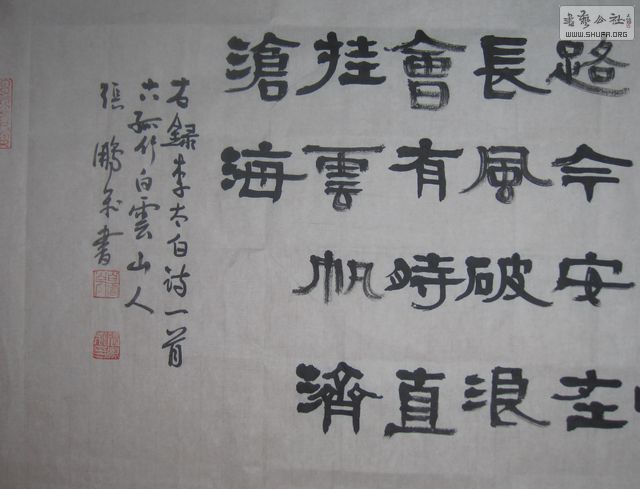 路今安在
長風破浪
會有時直
挂雲帆濟
滄海
右錄李太白诗一首
白雲山人
張鵬
書
書藝公社
WWW.SHUFA.ORG